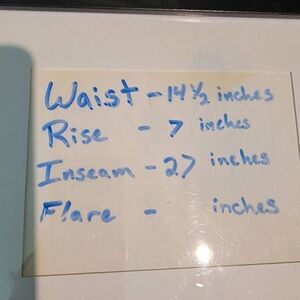 Waist - 14 1/2 inches
Rise - 7 inches
Inseam - 27 inches
Flare - inches